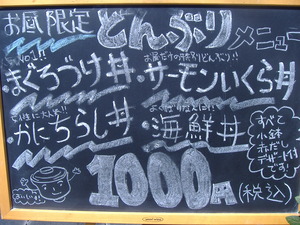 お昼限定 どんぶりメニュー
No.1!!
・まぐろづけ丼
・サーモンいくら丼
・かにちらし丼
・海鮮丼
すべて
小鉢
赤だし
デザート付
です!
1000円(税込)